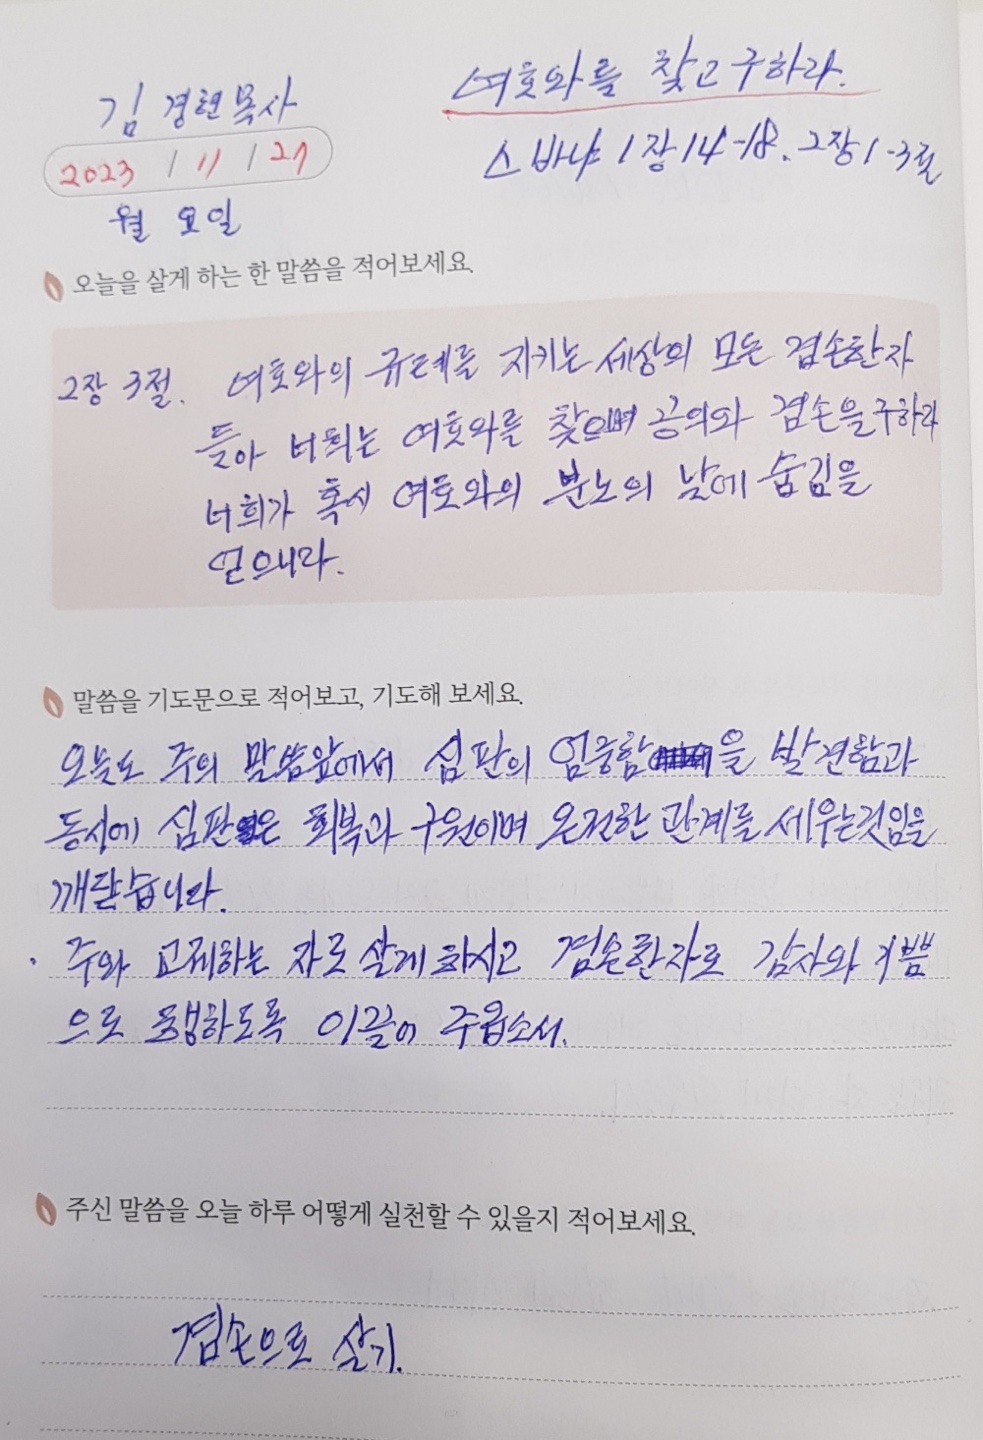 여호와를 찾고 구하라.
김 경현목사
2023 / 11 / 27
스바냐 1장 14-18. 2장 1-3절
월요일
오늘을 살게 하는 한 말씀을 적어보세요.
2장 3절. 여호와의 규례를 지키는 세상의 모든 겸손한자
들아 너희는 여호와를 찾으며 공의와 겸손을 구하라
너희가 혹시 여호와의 분노의 날에 숨김을
얻으니라.
말씀을 기도문으로 적어보고, 기도해 보세요.
오늘도 주의 말씀앞에서 심판의 엄중함을 발견함과
동시에 심판은 회복과 구원이며 온전한 관계를 세우는것임을
깨닫습니다.
. 주와 교제하는 자로 살게 하시고 겸손한자로 감사와 기쁨
으로 동행하도록 이끌어 주옵소서.
주신 말씀을 오늘 하루 어떻게 실천할 수 있을지 적어보세요.
겸손으로 살기.